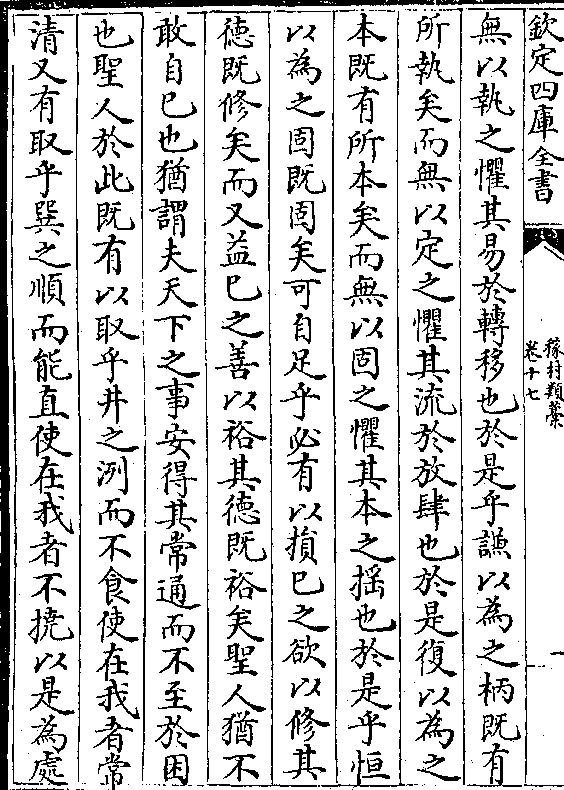 欽定四庫全書
稼村類藁
卷十七
無以執之懼其易於轉移也於是乎謙以為之柄既有
所執矣而無以定之懼其流於放肆也於是復以為之
本既有所本矣而無以固之懼其本之揺也於是乎恒
以為之固既固矣可自足乎必有以損已之欲以修其
德既修矣而又益已之善以裕其德既裕矣聖人猶不
敢自已也猶謂夫天下之事安得其常通而不至於困
也聖人於此既有以取乎井之洌而不食使在我者常
清又有取乎巽之順而能直使在我者不撓以是為處